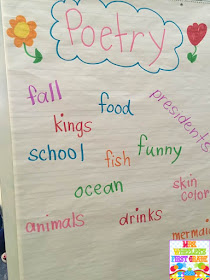 Poetry
fall
food
presidents
kings
school
fish
funny
ocean
skin
color
animals
drinks
mermaid
MRS.
WHEELER'S
FIRST GRADE